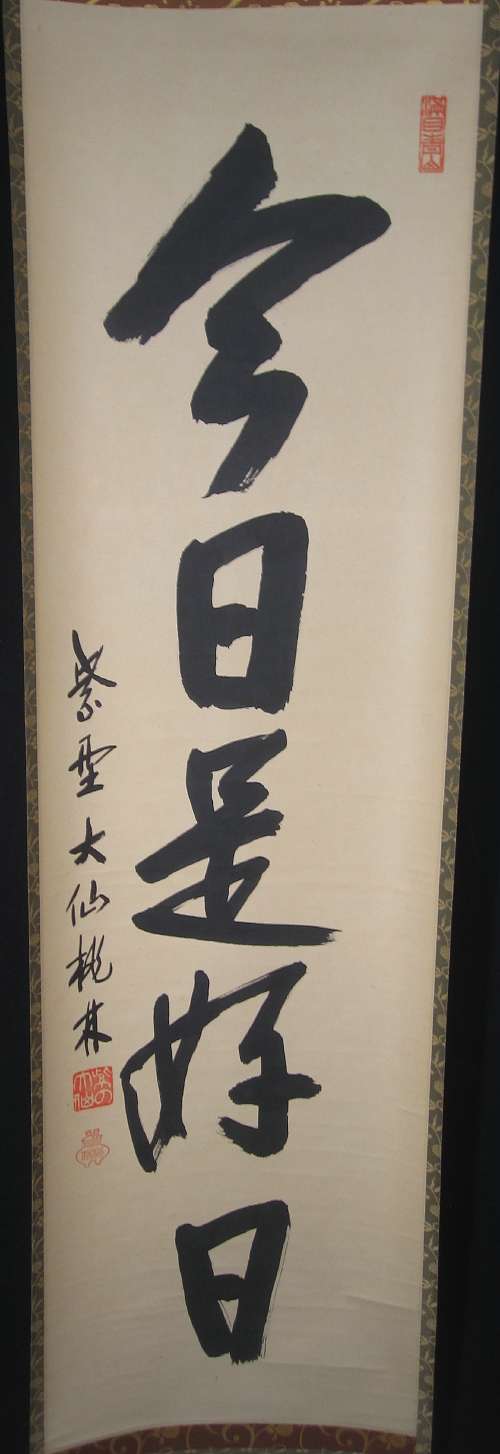 今日是好日
紫野大仙桃林